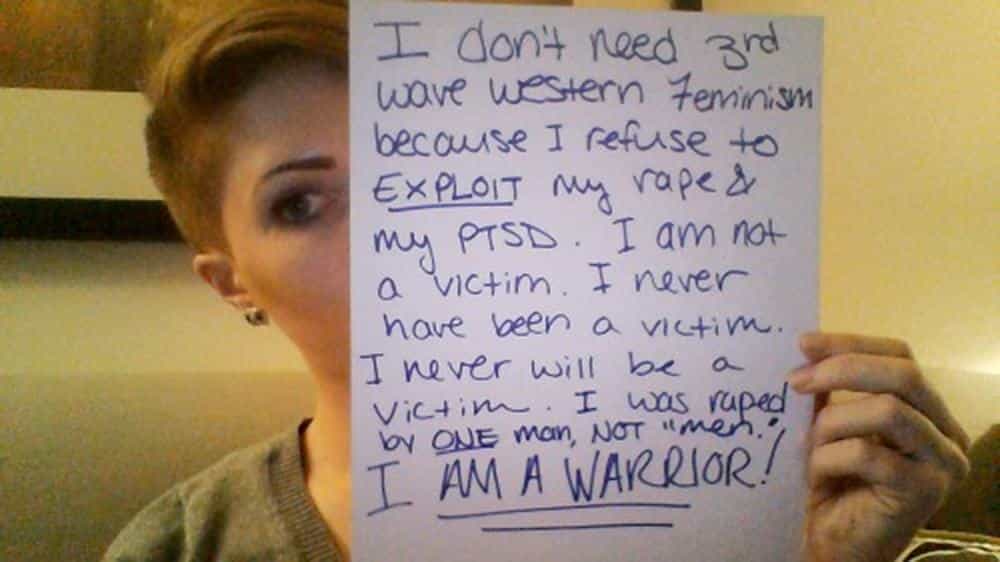 I don't need 3rd
wave western feminism
because I refuse to
EXPLOIT my rape &
my PTSD. I am not
a victim. I never
have been a victim.
I never will be a
victim. I was raped
by ONE man, NOT "men."
I AM A WARRIOR!